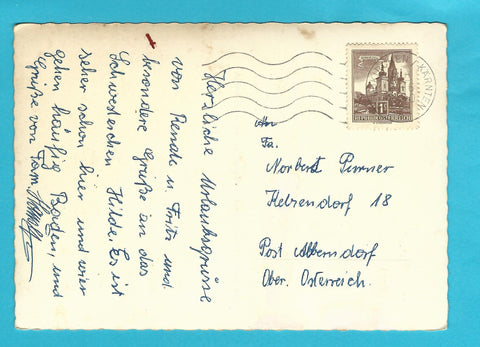 Herzliche Urlaubsgrüße
von Renate u. Fritz und
besondere Grüße an das
Schwesterchen Hilde. Es ist
seher schon hier und wier
gehen häufig Baden, und
Grüße von Fam.
An
Fa.
Norbert
Ketzendorf 18
Post
Ober. Österreich.
KÄRNTEN
REPUBLIK ÖSTERREICH